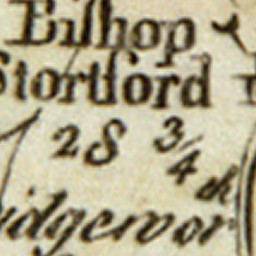 Biſhop
Stortford
28 3/4
idgewor